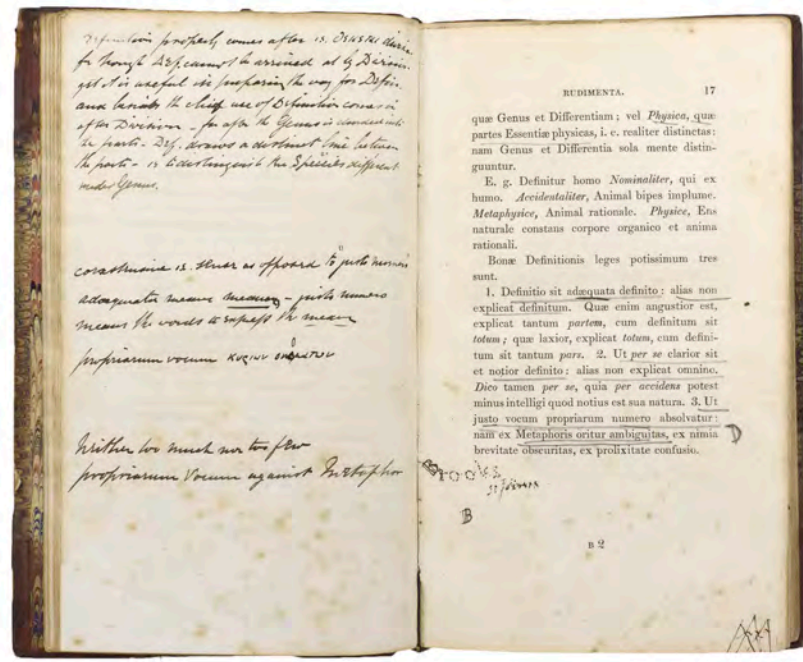 Definition properly comes after
for though Def. cannot be arrived at by Division
yet it is useful in preparing the way for Defin.
and besides the chief use of Definition comes in
after Division - for after the Genus is divided into
its parts - Def. draws a distinct line between
the parts - is to distinguish the Species different
under Genus.
as opposed to justo numero
adaequata means meaning - justo numero
means the words to express the mean
propriarum vocum κυριων ονοματων
Neither too much nor too few
propriarum vocum against Metaphor
RUDIMENTA. 17
quæ Genus et Differentiam; vel Physica, quæ
partes Essentiæ physicas, i. e. realiter distinctas:
nam Genus et Differentia sola mente distin-
guuntur.
E. g. Definitur homo Nominaliter, qui ex
humo. Accidentaliter, Animal bipes implume.
Metaphysice, Animal rationale. Physice, Ens
naturale constans corpore organico et anima
rationali.
Bonæ Definitionis leges potissimum tres
sunt.
1. Definitio sit adæquata definito: alias non
explicat definitum. Quæ enim angustior est,
explicat tantum partem, cum definitum sit
totum; quæ laxior, explicat totum, cum defini-
tum sit tantum pars. 2. Ut per se clarior sit
et notior definito: alias non explicat omnino.
Dico tamen per se, quia per accidens potest
minus intelligi quod notius est sua natura. 3. Ut
justo vocum propriarum numero absolvatur:
nam ex Metaphoris oritur ambiguitas, ex nimia
brevitate obscuritas, ex prolixitate confusio.
D
B
B 2